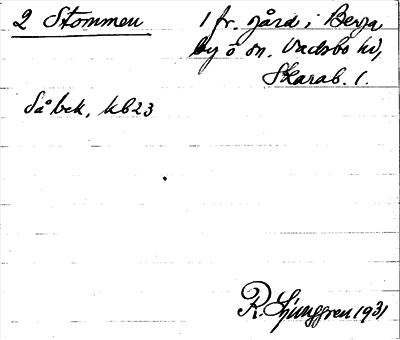 2 Stommen
1 fr. gård i Berga
by o sn, Vadsbo hd,
Skarab. l.
Så bek, kb 23
R. Ljunggren 1931